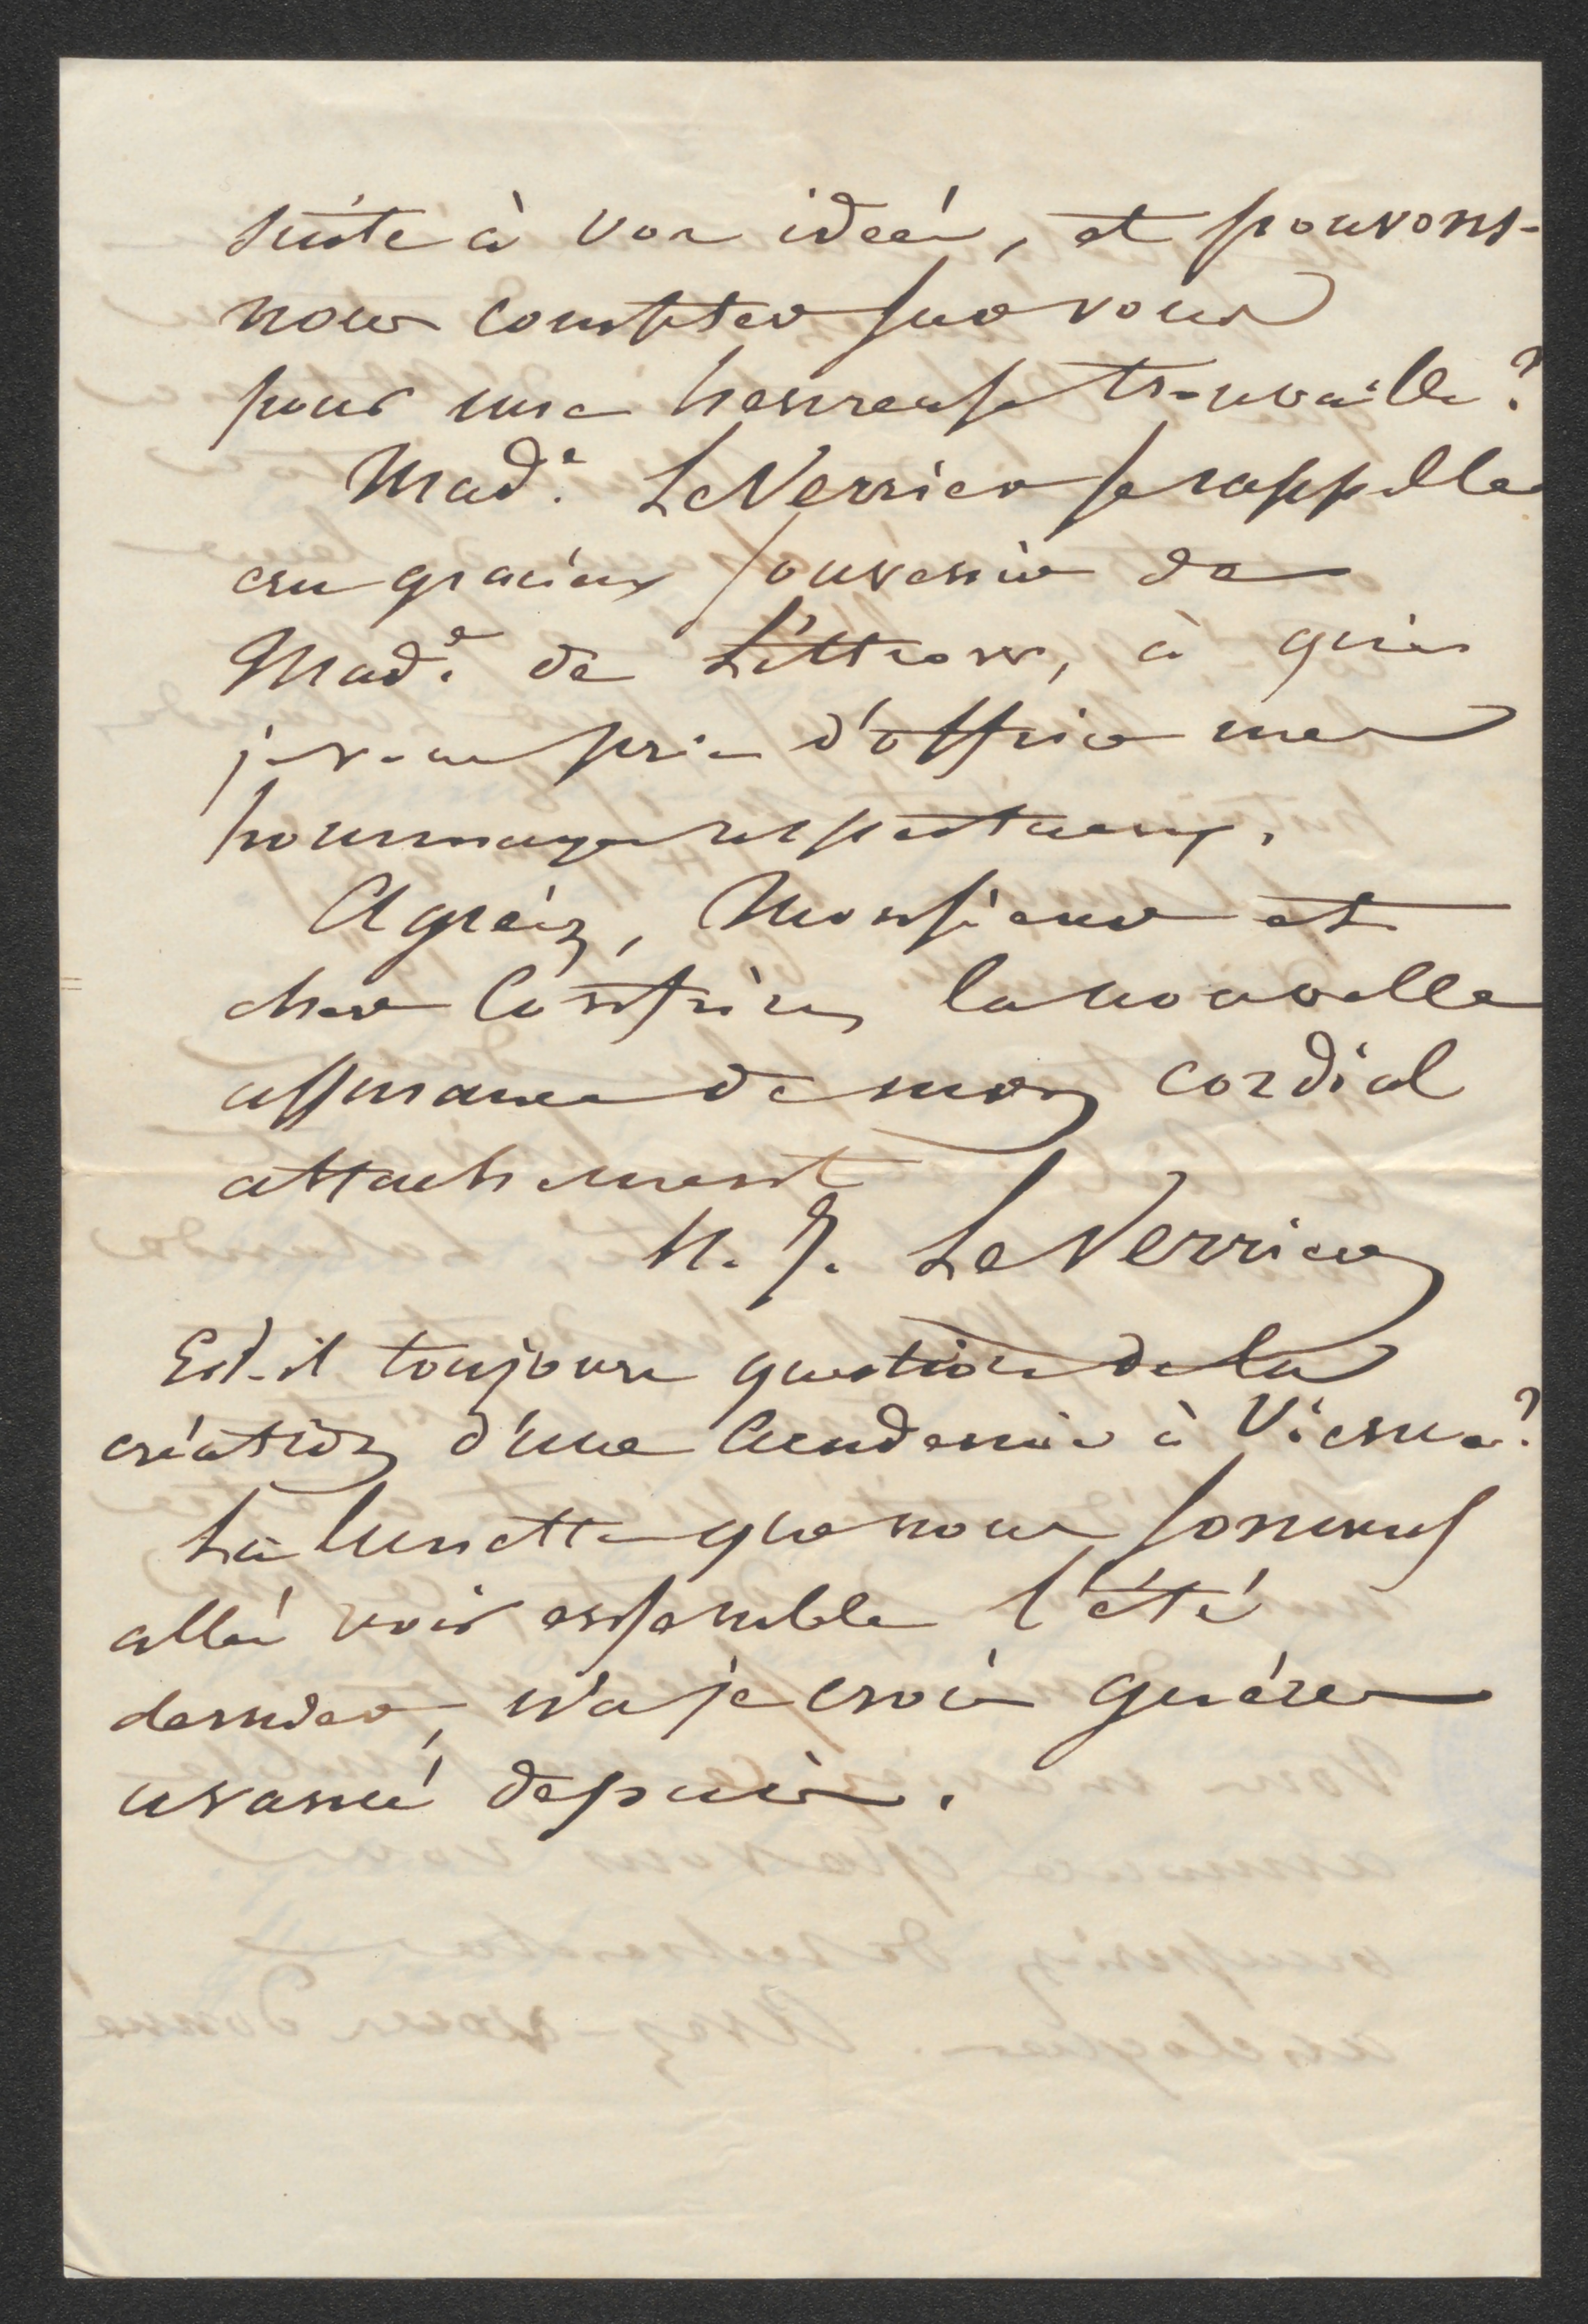 suite à vos idées, et pouvons-
nous compter sur vous
pour une heureuse trouvaille?
Made. LeVerrier se rappelle
au gracieux souvenir de
Made. de Littrow, à qui
je vous prie d'offrir mes
hommages respectueux.
Agréez, Monsieur et
cher Confrère, la nouvelle
assurance de mon cordial
attachement
U. J. LeVerrier
Est-il toujours question de la
création d'une Academie à Vienne?
La lunette que nous sommes
allés voir ensemble l'été
dernier, n'a je crois guères
avancé depuis.